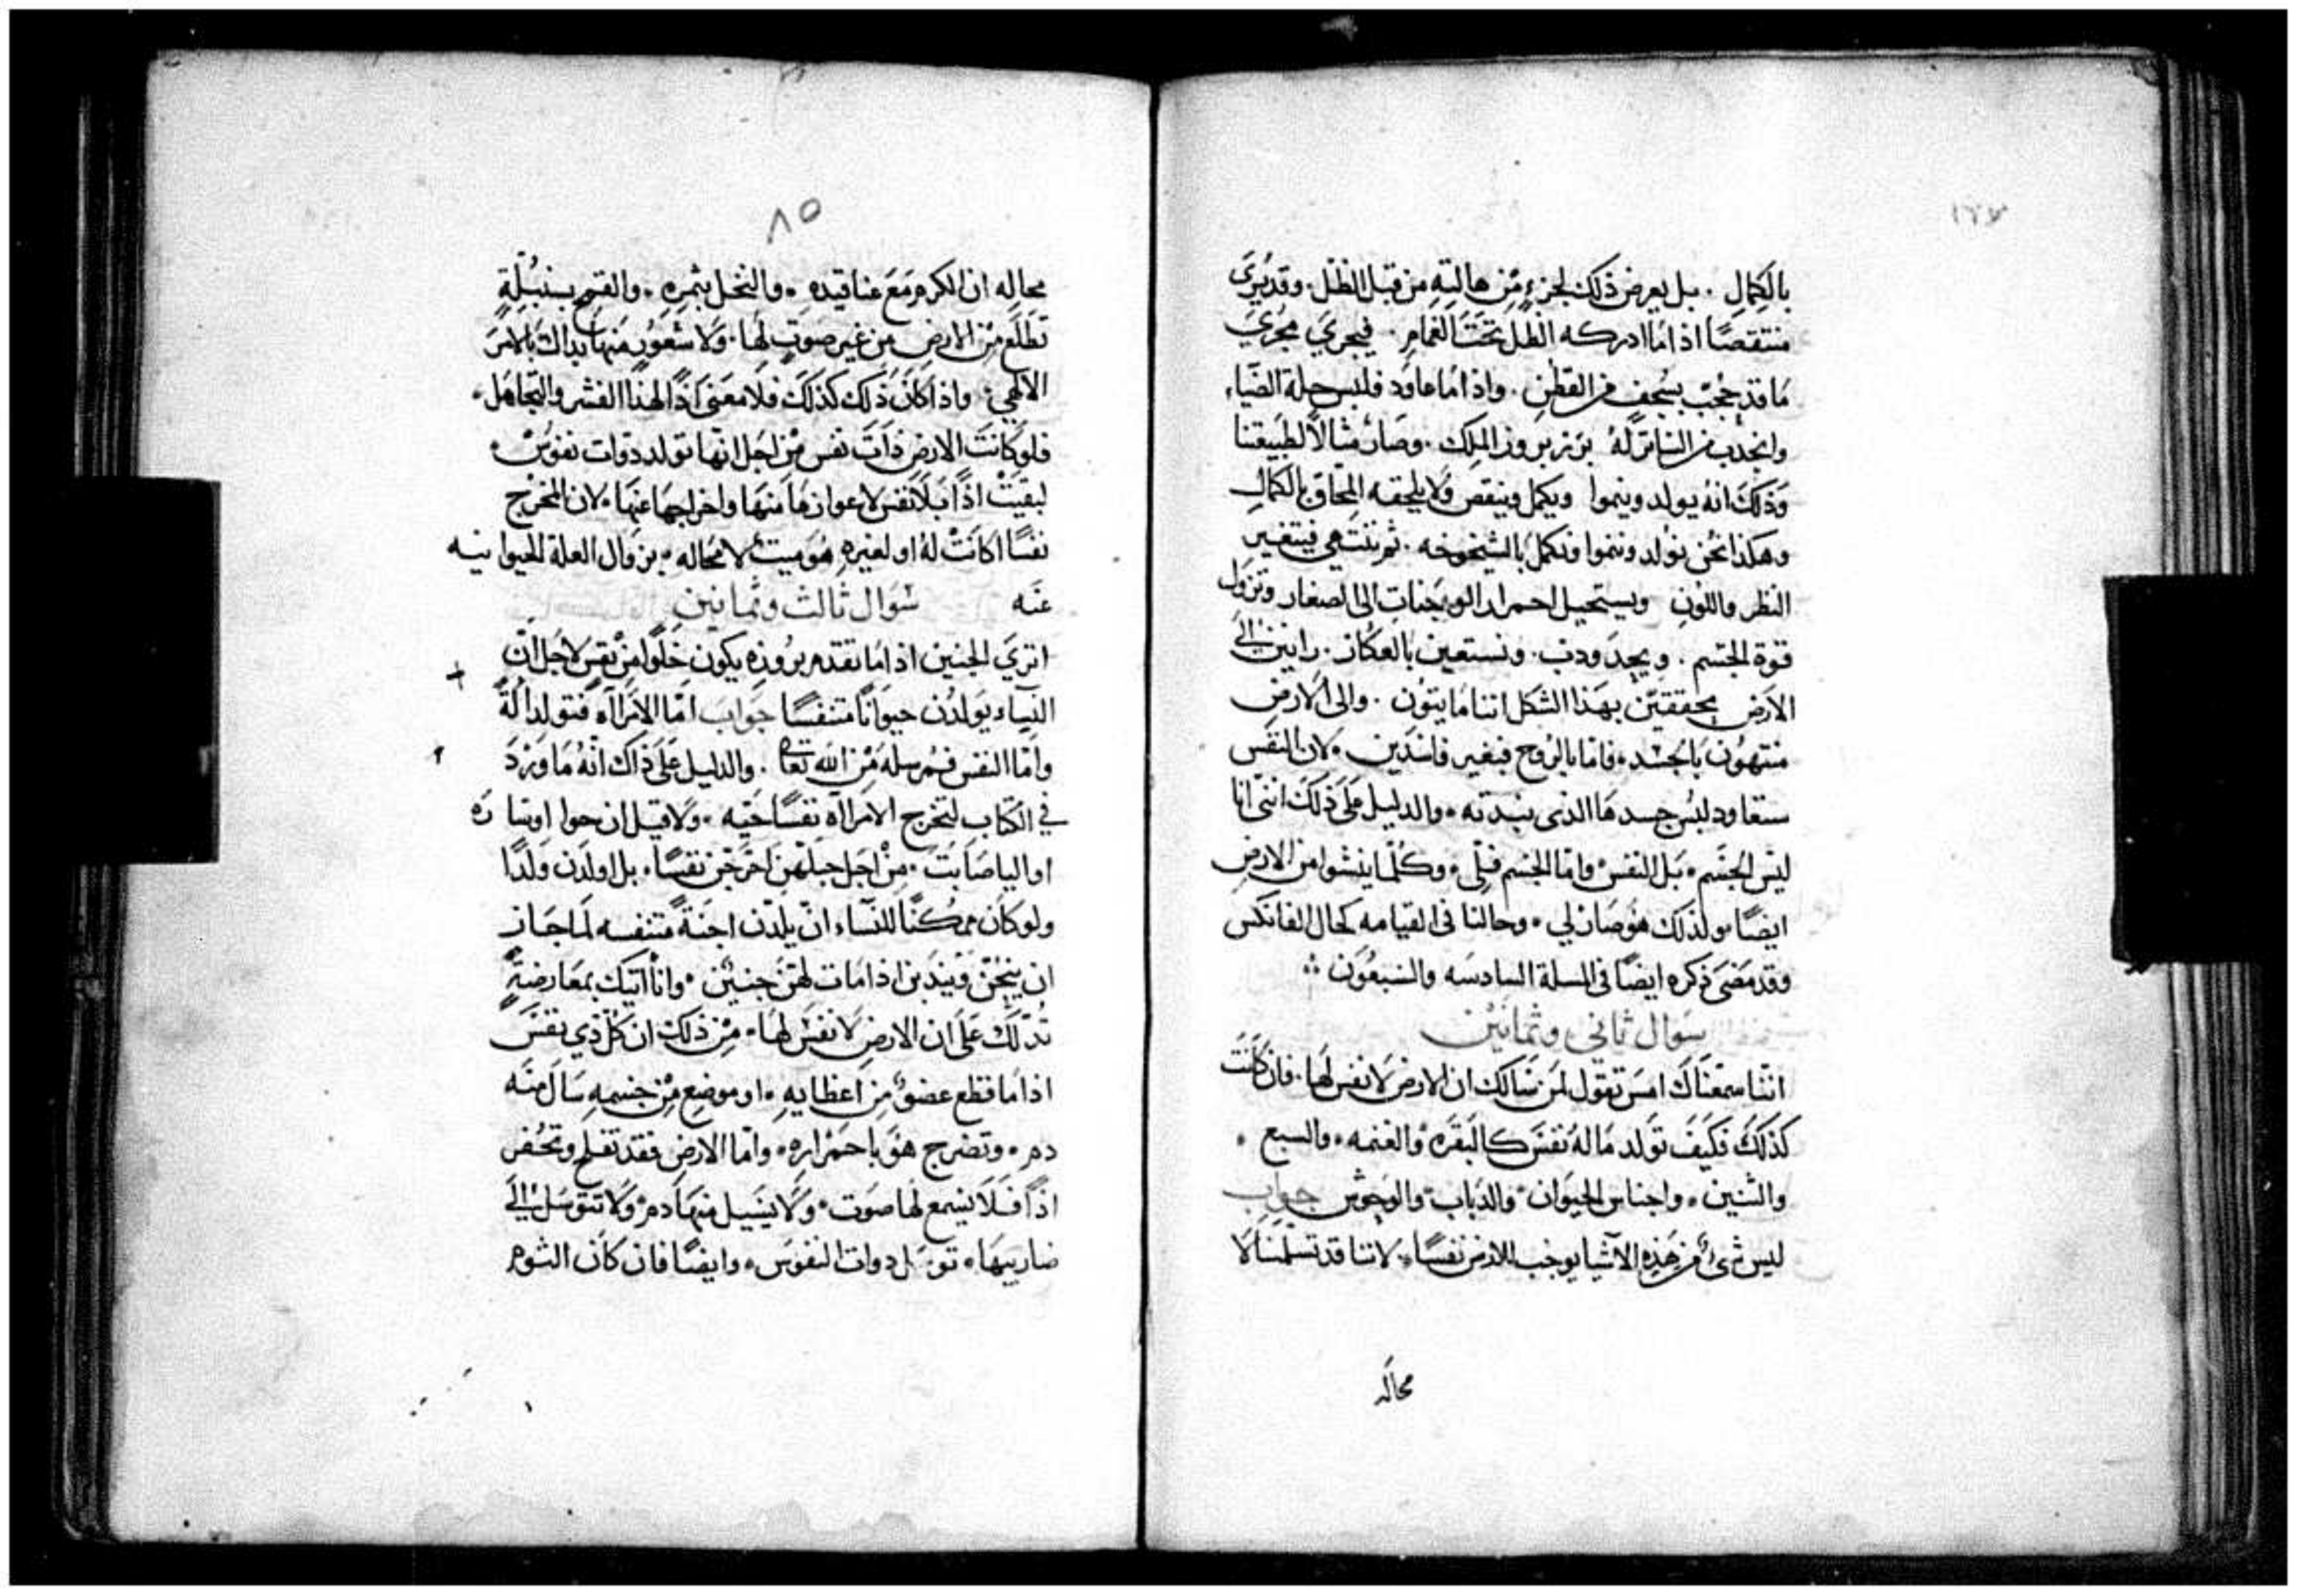 بالكمال . بل يعرض ذلك لجزءٍ مّن هالتِهِ من قبل الظل . وقد يُرَى
منتقصًا اذاما ادركه الظل تحت الغمام . فيجري مجرَي
مَا قد حُجبَ بسُجف من القطن . واذاما عاود فلبس حلة الضياء
وانجذب من الساتر لهُ برز بروز الملك . وصَار مثالاً لطبيعتنا
وَذلكَ انهُ يولد وينموا ويكمل وينقص وَلا يلحقه المحاق بالكمال
وهكذا نحُن نولد وننموا ونكمل بالشيخوخه . ثم ننتهي فيتغير
النظر واللون ويستحيل احمرار الوجَنات الى الصفار وتزول
قوة الجسم . ونستعين بالعكاز . رانين الَى
الارض محققين بهذا الشكل اننا مايتون . والى الارض
منتهون بالجسَد . فاما بالروح فبغير فاسَدين . لان النفس
ستعاود لبُس جسدها الذى نبدته . والدليل علَى ذلكَ اننى انا
ليس الجسَم . بَل النفس واما الجسم فلى . وكلما ينشوا من الارض
ايضًا ولذلك هُو صار لي . وحالنا فى القيامه كحال الفانكس
وقد مضَى ذكره ايضًا فى المسلة السادسَه والسَبعُون
سَوال ثاني وثمانيْن
اننا سمعنَاكَ امسَ تقول لمَن سَالك ان الارض لا نفس لهَا . فان كانتَ
كذلكَ فكيَفَ تَولد مَا لهُ نفسَ كالبقَره والغنمه . والسبع .
والتنين . واجناس الحيوَان والدَباب والوحوش جواب
ليس شئ من هَذِهِ الاشيا يوجب للارض نفسًا . لاننا قد تسلمَنا لا
محاله
٨٥
محاله ان الكرم مَعَ عناقيده . والنخل بثمرِهِ . والقمح بسنبُلِهِ
تطلَع مّن الارض مِن غير صَوتٍ لهَا . وَلا شعُور منهَا بداك بالامرَ
الالهي . واذا كانَ ذلك كذلكَ فلا معنى اذًا لهذا الفشر والتجاهَل .
فلو كانتَ الارض ذاتَ نفس مّن اجَل انها تولد دوات نفوسَ
لبقيَتْ اذًا بلا نفس لاعوازهَا منهَا واخراجهَا عنهَا . لان المخرج
نفسًا اكانَتْ لهُ او لغيره هُو ميت لا محاله . بزوال العلة الحيوانيه
عنَه سَوال ثالث وثمانين
اترَي الجنين اذاما تقدم بروزه يكون خَلوًا مِنْ نفس لاجَل ان
النسِاء يَولدُن حيوَانًا متنفسًا جوَاب امّا الامَراآه فتولد الةً
وامّا النفس فمُرسلة مِن الله تعالى . والدليل عَلى ذاك انهُ ما وَرَدَ
في الكتاب لتخرج الامَراآه نفسًا حيَه . ولا قيل ان حوا او سارَه
او اليا صَابَت . مِنْ اجَل حبَلهن اخرجَن نفسًا . بل اولدن ولدًا
ولو كان ممكنًا للنسَاء ان يلدّن اجنَةً متنفسه لمَا جَاز
ان ينحُن ويندبن اذا مات لهَن جنين . وانا اتيك بمعَارضةٍ
تدُلكَ عَلى ان الارض لا نفسَ لهَا . مِن ذلك ان كل ذي نفسَ
اذاما قطع عضوُ مِن اعظايهِ . او موضع مِن جسمه سَال منَه
دم . وتضرج هُو باحمَراره . وامّا الارض فقد تفلح وتحُفر
اذًا فَلا يسمع لهَا صَوت . وَلا يسَيل منهَا دم وَلا تتوسَل الَى
ضاربيهَا . توسَل دوات النفوسَ . وايضًا فان كان الثوم